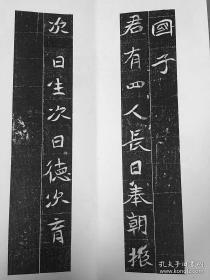 國子
君有四人長曰奉朝振
次曰生次曰德次育
孔夫子旧书网